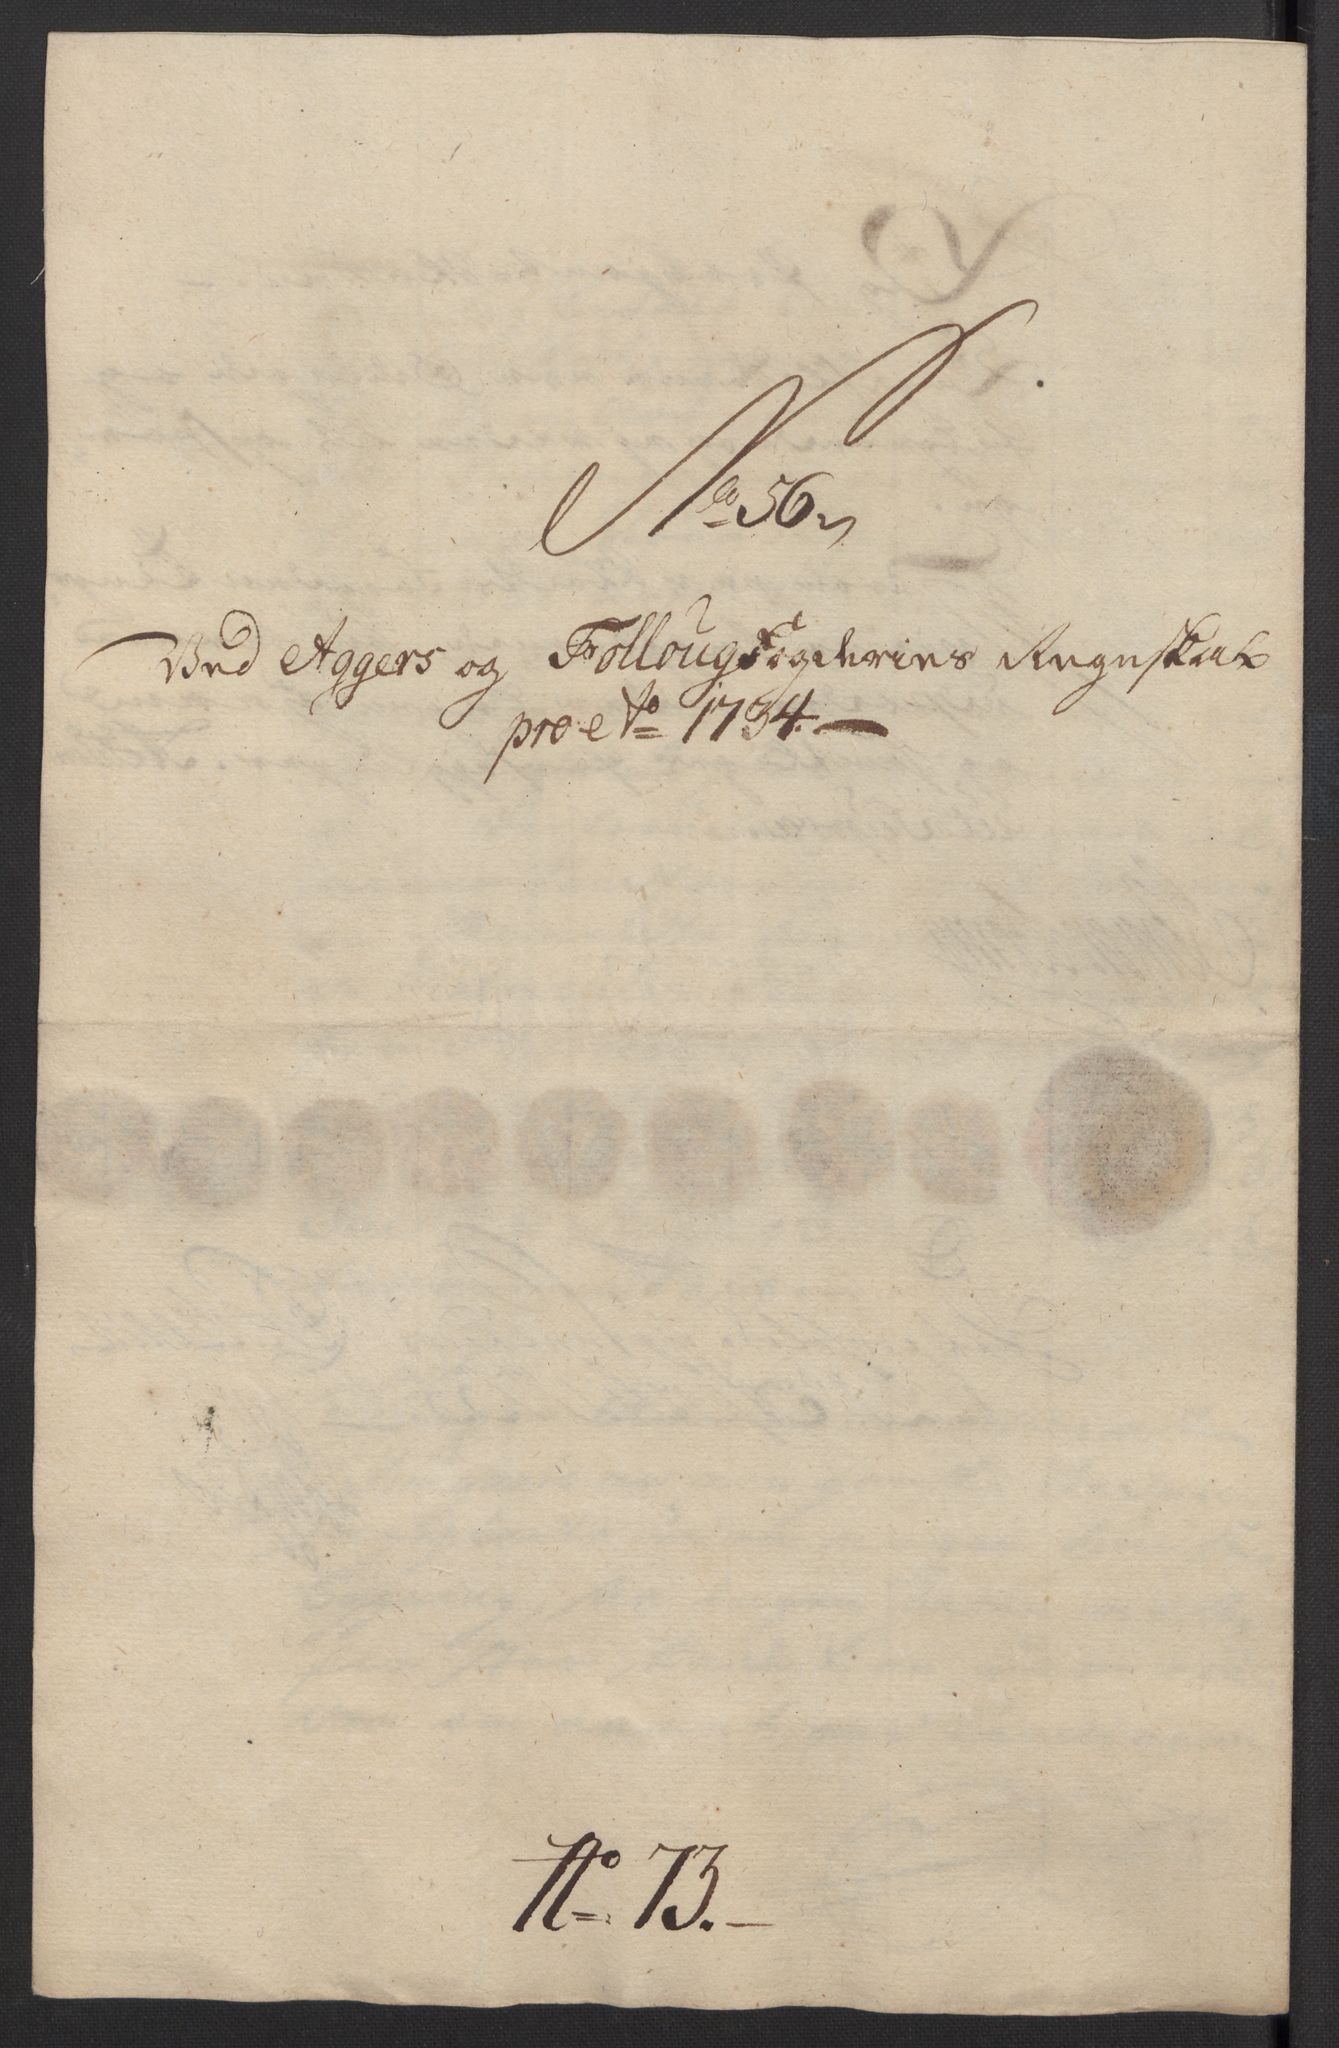 No 56
Ved Aggers og Follougs Fogderies Regnskab
pro Ao 1734.
No 73.